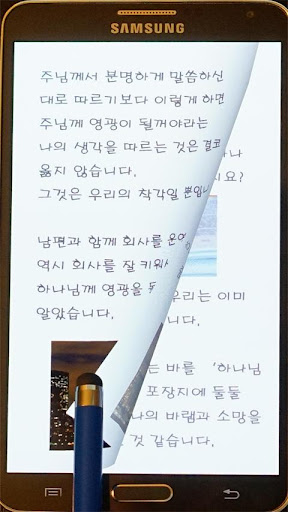 SAMSUNG
주님께서 분명하게 말씀하신
대로 따르기보다 이렇게 하면
주님께 영광이 될꺼야라는
나의 생각을 따르는 것은 결코
옳지 않습니다.
하나
지요?
그것은 우리의 착각일 뿐입니
남편과 함께 회사를 운영
역시 회사를 잘 키워
하나님께 영광을
우리는 이미
알았습니다.
습니다.
는 바를 '하나님
포장지에 둘둘
나의 바램과 소망을
것 같습니다.